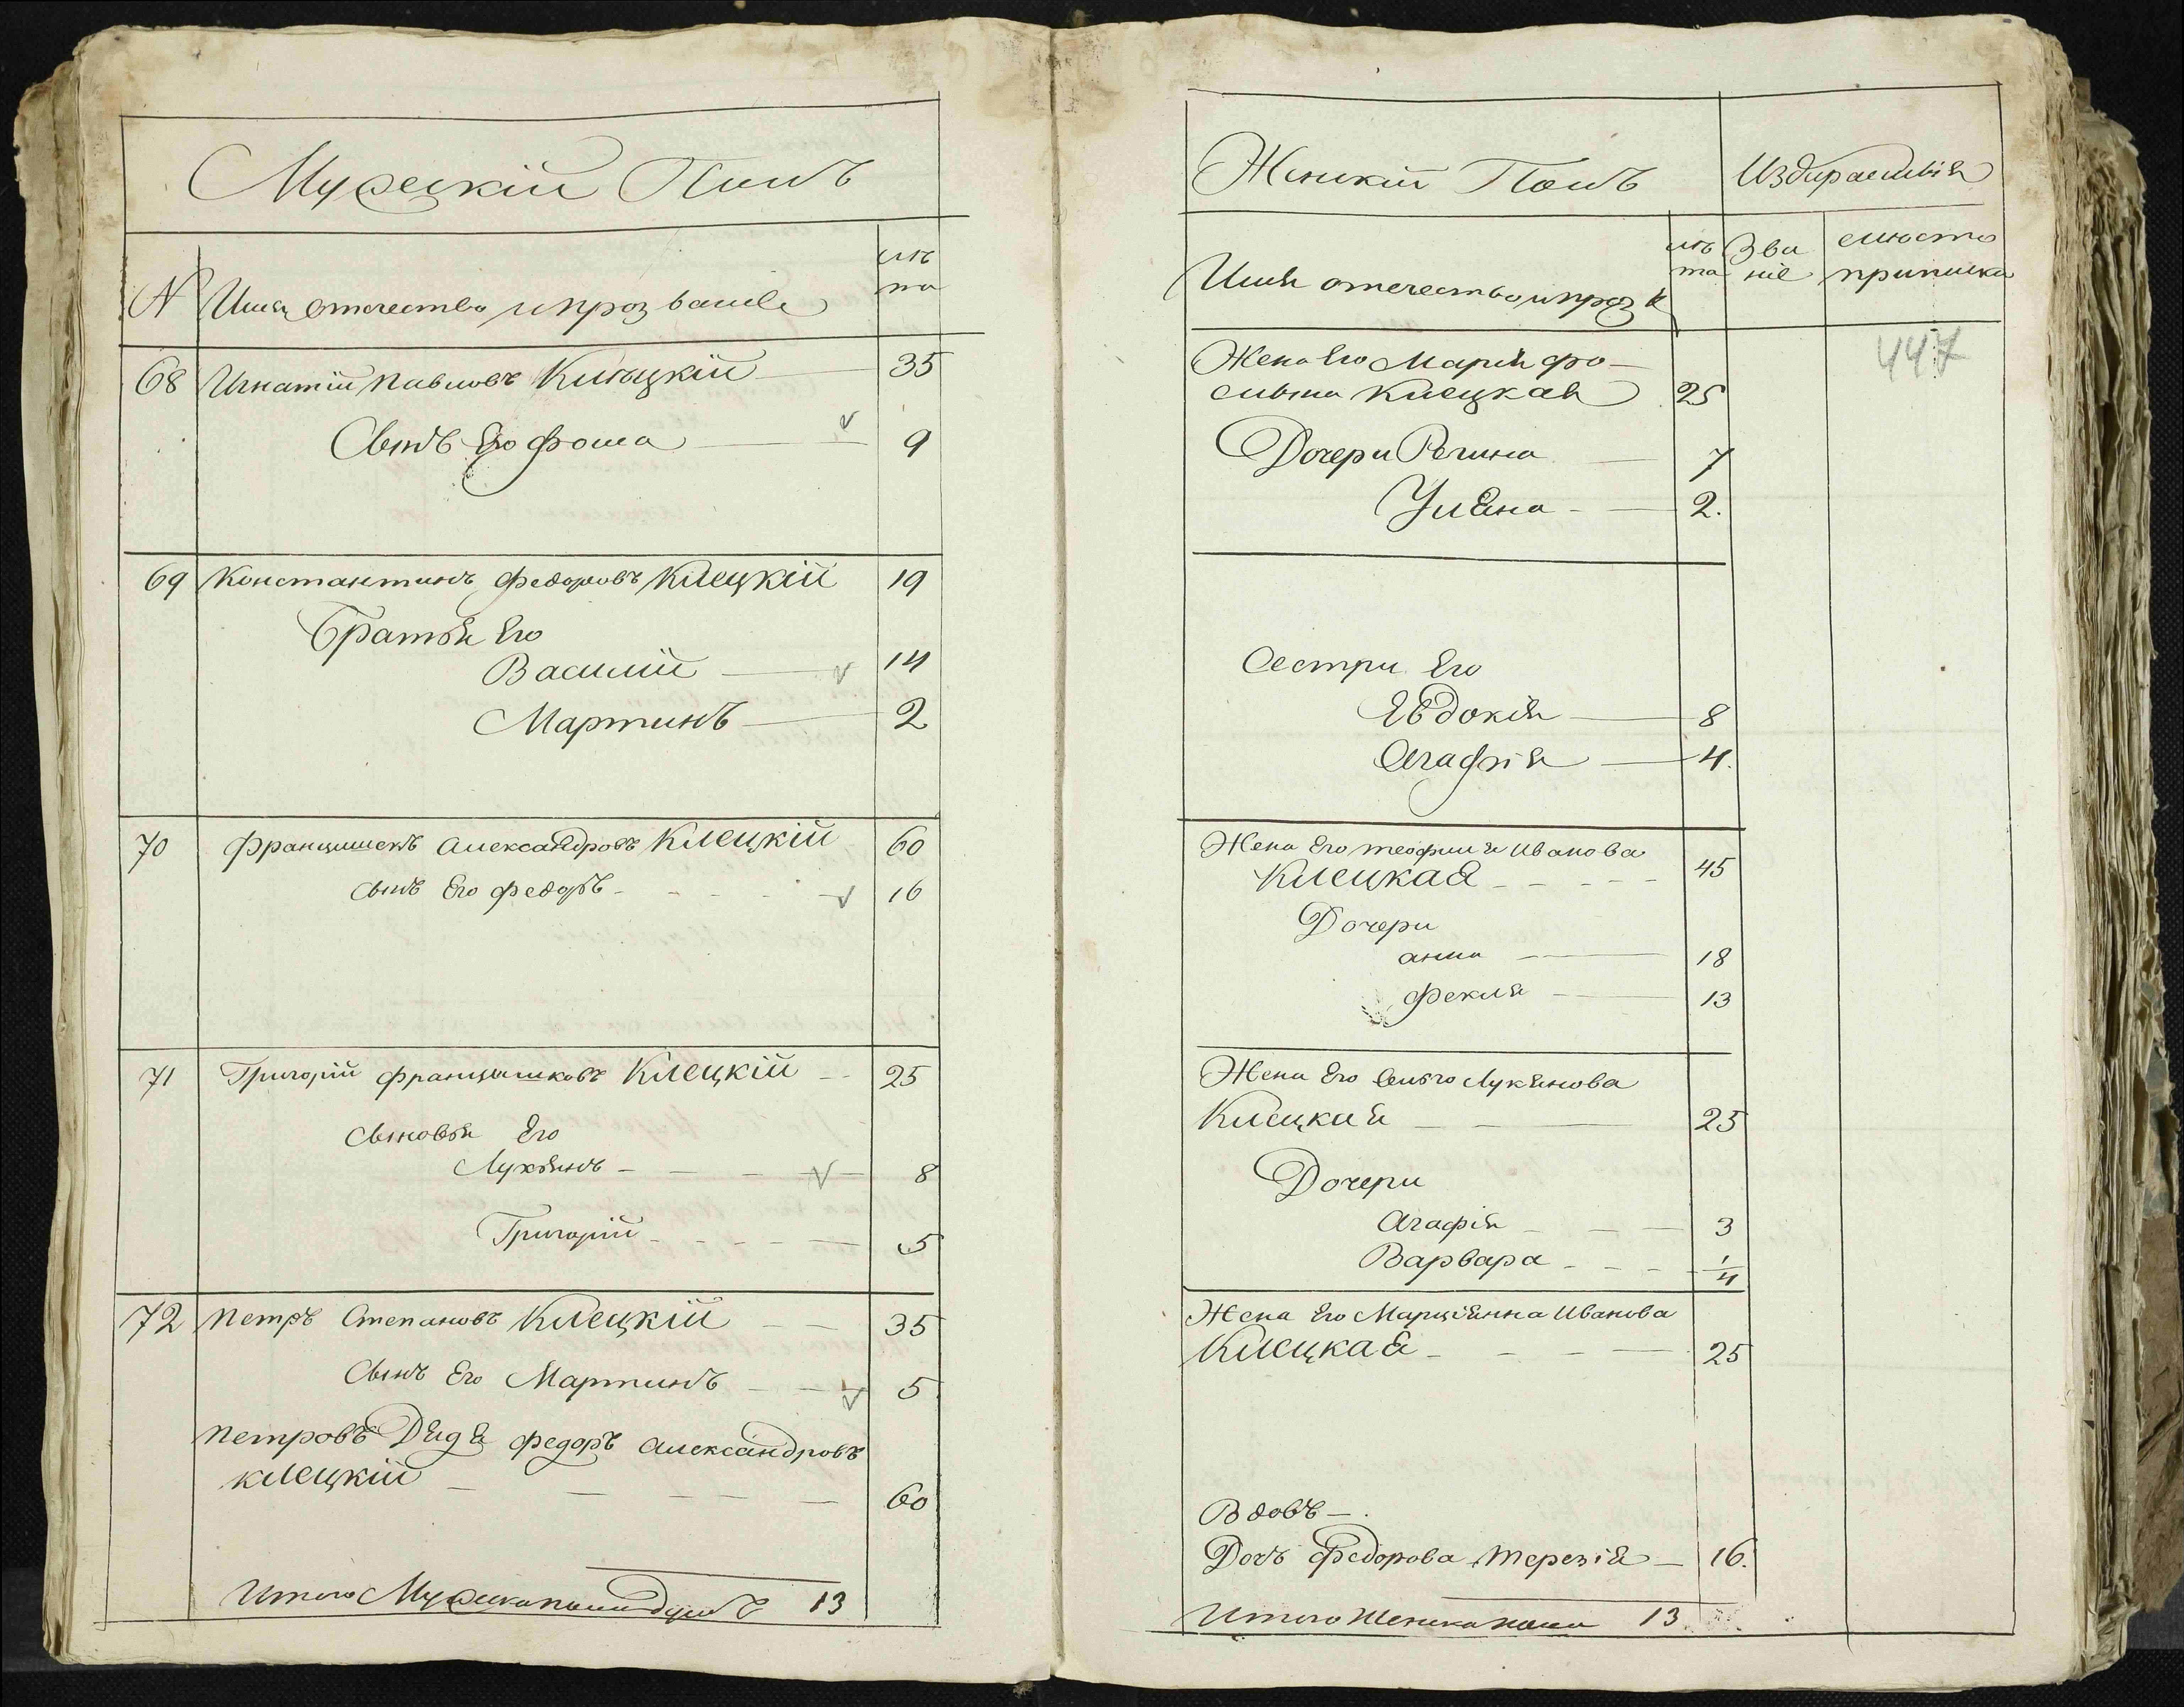 Мужескій Полъ
N Имя отечество и прозваніе лѣ
та
68 Игнатій Павловъ Клѣцкій 35
Сынъ Его Фома 9
69 Константинъ Федоровъ Клецкій 19
Братья Его
Василій 14
Мартинъ 2
70 Францишекъ Александровъ Клецкій 60
Сынъ Его Федоръ 16
71 Григорій Францишковъ Клецкій 25
Сыновья Его
Лукьянъ 8
Григорій 5
72 Петръ Степановъ Клецкій 35
Сынъ Его Мартинъ 5
Петровъ Дядя Федоръ Александровъ
Клецкій 60
Итого Мужска пола душъ 13
Женскій Полъ
Имя отечество и проз лѣ
та
Зва
ніе
мѣсто
приписки
447
Жена Его Марія
Клецкая 25
Дочери Регина 7
Уляна 2.
Сестри Его
Евдокія 8
Агафія 4.
Жена Его Теофиля Иванова
Клецкая 45
Дочери
анна 18
Фекля 13
Жена Его Лукянова
Клецкая 25
Дочери
Агафія 3
Варвара 1/4
Жена Его Марціянна Иванова
Клецкая 25
Вдовъ
Дочъ Федорова Терезія 16.
Итого Женска пола 13